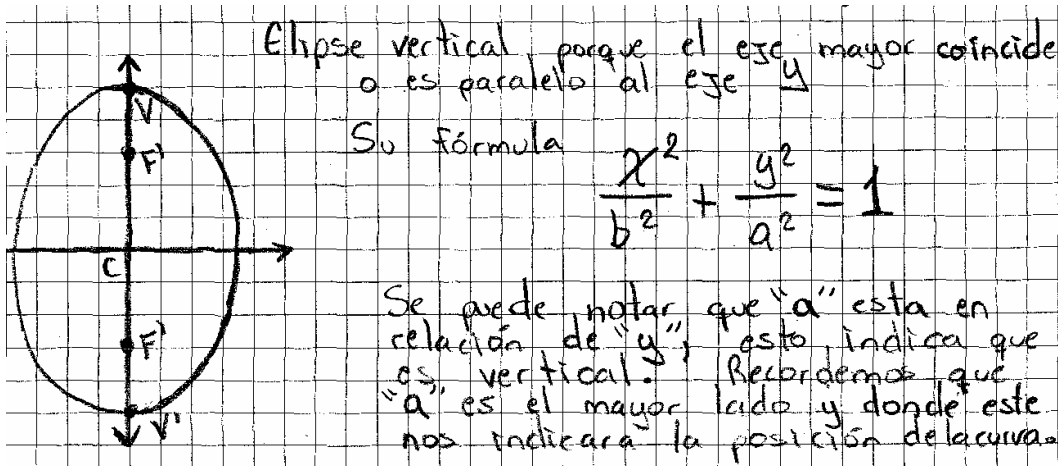 Elipse vertical, porque el eje mayor coincide
o es paralelo al eje y
V
F'
Su fórmula
x²/b² + y²/a² = 1
C
Se puede notar que "a" esta en
relación de "y", esto indica que
F'
es vertical. Recordemos que
"a" es el mayor lado y donde este
V'
nos indicará la posición de la curva.